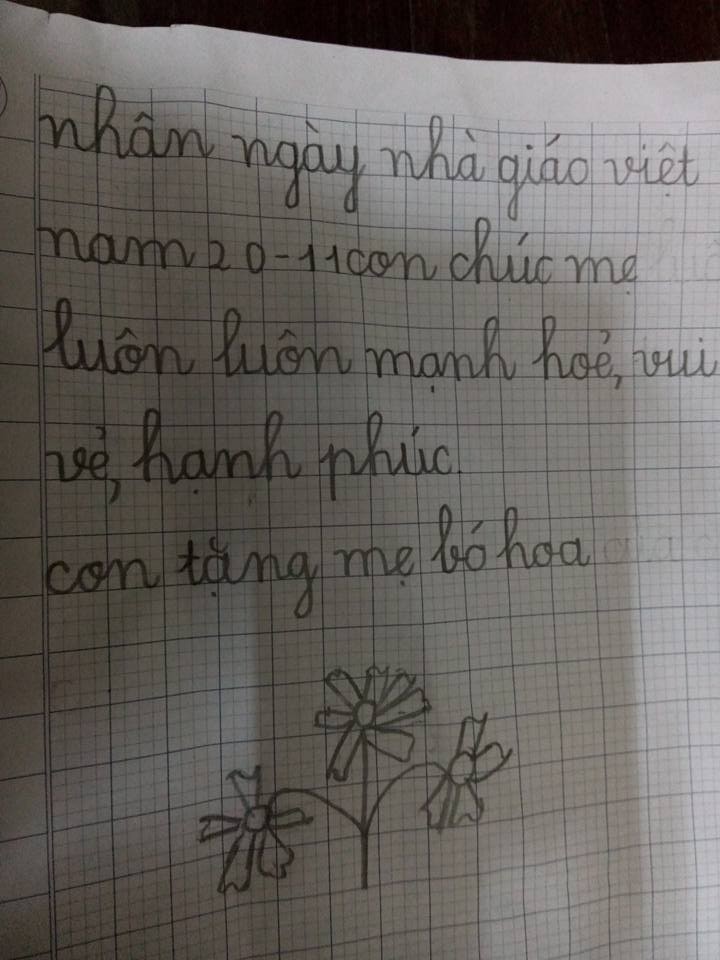 nhân ngày nhà giáo việt
nam 20-11 con chúc mẹ
luôn luôn mạnh hoẻ, vui
vẻ, hạnh phúc.
con tặng mẹ bó hoa